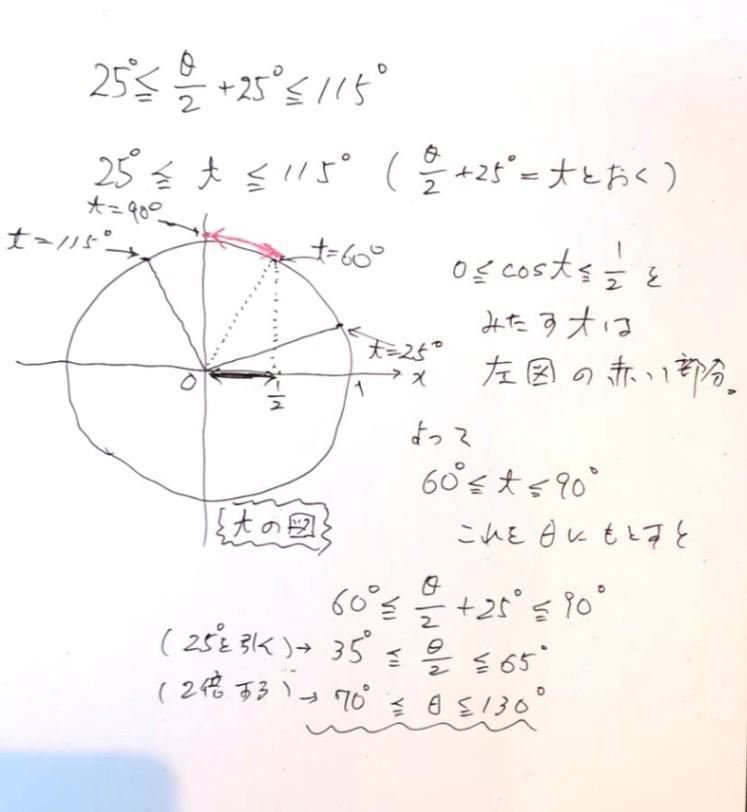 25°≦θ/2+25°≦115°
25°≦t≦115° (θ/2+25°=tとおく)
t=90°
t=115°
t=60°
t=25°
0
1/2
1
x
{tの図}
0≦cost≦1/2を
みたすtは
左図の赤い部分。
よって
60°≦t≦90°
これをθにもどすと
60°≦θ/2+25°≦90°
(25°を引く)→35°≦θ/2≦65°
(2倍する)→70°≦θ≦130°